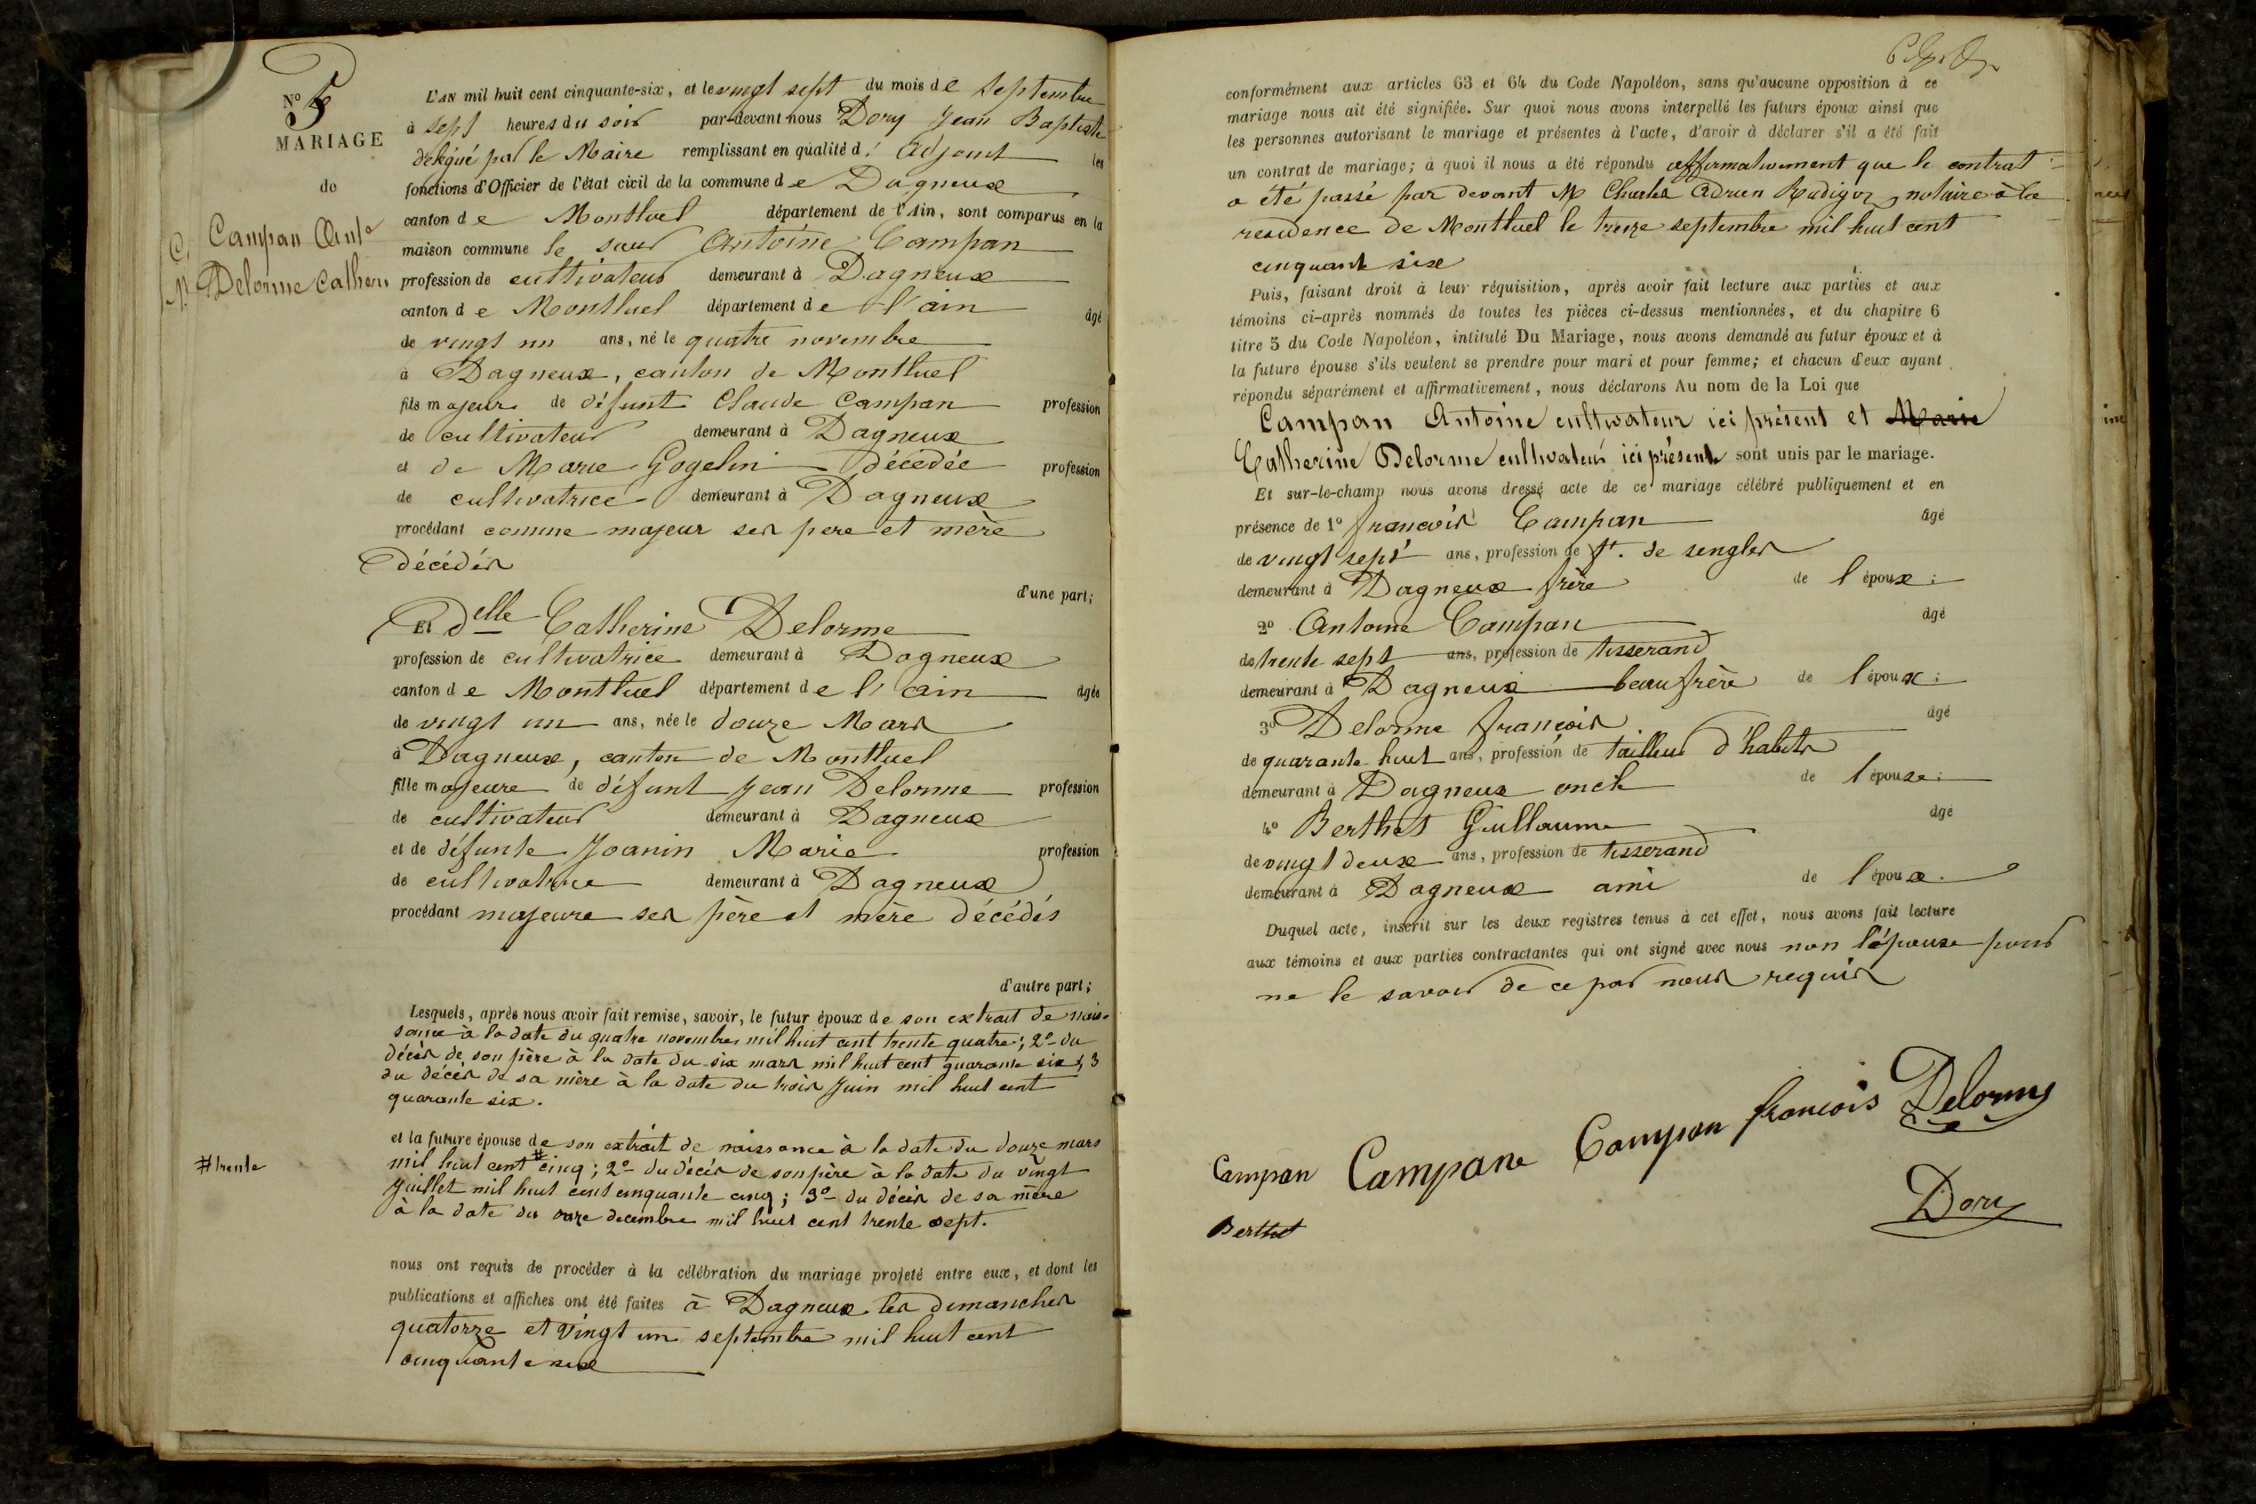 N° 5
MARIAGE
de
Campan Ant.e
Delorme Catheri
L'AN mil huit cent cinquante-six, et le vingt sept du mois de Septembre
à sept heures du soir par-devant nous Dory Jean Baptiste
délégué par le Maire remplissant en qualité d' Adjoint les
fonctions d'Officier de l'état civil de la commune de Dagneux
canton de Montluel département de l'Ain, sont comparus en la
maison commune le sieur Antoine Campan
profession de cultivateur demeurant à Dagneux
canton de Montluel département de l'ain âgé
de vingt un ans, né le quatre novembre
à Dagneux, canton de Montluel
fils majeur de défunt Claude Campan profession
de cultivateur demeurant à Dagneux
et de Marie Gogelin décédée profession
de cultivatrice demeurant à Dagneux
procédant comme majeur ses pere et mère
décédés
d'une part;
Et delle Catherine Delorme
profession de cultivatrice demeurant à Dagneux
canton de Montluel département de l'ain âgée
de vingt un ans, née le douze Mars
à Dagneux, canton de Montluel
fille majeure de défunt Jean Delorme profession
de cultivateur demeurant à Dagneux
et de défunte Joanin Marie profession
de cultivatrice demeurant à Dagneux
procédant majeure ses père et mère décédés
d'autre part;
Lesquels, après nous avoir fait remise, savoir, le futur époux de son extrait de nais-
sance à la date du quatre novembre mil huit cent trente quatre; 2° du
décès de son père à la date du six mars mil huit cent quarante six; 3
du décès de sa mère à la date du trois Juin mil huit cent
quarante six.
et la future épouse de son extrait de naissance à la date du douze mars
mil huit cent # cinq; 2° du décès de son père à la date du vingt
#trente
Juillet mil huit cent cinquante cinq; 3° du décès de sa mère
à la date du onze decembre mil huit cent trente sept.
nous ont requis de procéder à la célébration du mariage projeté entre eux, et dont les
publications et affiches ont été faites à Dagneux les dimanches
quatorze et vingt un septembre mil huit cent
cinquante six
conformément aux articles 63 et 64 du Code Napoléon, sans qu'aucune opposition à ce
mariage nous ait été signifiée. Sur quoi nous avons interpellé les futurs époux ainsi que
les personnes autorisant le mariage et présentes à l'acte, d'avoir à déclarer s'il a été fait
un contrat de mariage; à quoi il nous a été répondu affirmativement que le contrat
a été passé par devant M Charles Adrien Rudigoz notaire à la
residence de Montluel le treize septembre mil huit cent
cinquante six
Puis, faisant droit à leur réquisition, après avoir fait lecture aux parties et aux
témoins ci-après nommés de toutes les pièces ci-dessus mentionnées, et du chapitre 6
titre 5 du Code Napoléon, intitulé Du Mariage, nous avons demandé au futur époux et à
la future épouse s'ils veulent se prendre pour mari et pour femme; et chacun d'eux ayant
répondu séparément et affirmativement, nous déclarons Au nom de la Loi que
Campan Antoine cultivateur ici présent et Marie
Catherine Delorme cultivateur ici présente sont unis par le mariage.
Et sur-le-champ nous avons dressé acte de ce mariage célébré publiquement et en
présence de 1° francois Campan âgé
de vingt sept ans, profession de ft. de sengles
demeurant à Dagneux frère de l'époux;
2° Antoine Campan âgé
de trente sept ans, profession de tisserand
demeurant à Dagneux beaufrère de l'époux;
3° Delorme francois âgé
de quarante huit ans, profession de tailleur d'habits
demeurant à Dagneux oncle de l'épouse;
4° Berthet Guillaume âgé
de vingt deux ans, profession de tisserand
demeurant à Dagneux ami de l'époux.
Duquel acte, inscrit sur les deux registres tenus à cet effet, nous avons fait lecture
aux témoins et aux parties contractantes qui ont signé avec nous non l'épouse pour
ne le savoir de ce par nous requis
Campan Campane Campan francois Delorme
Berthet Dory